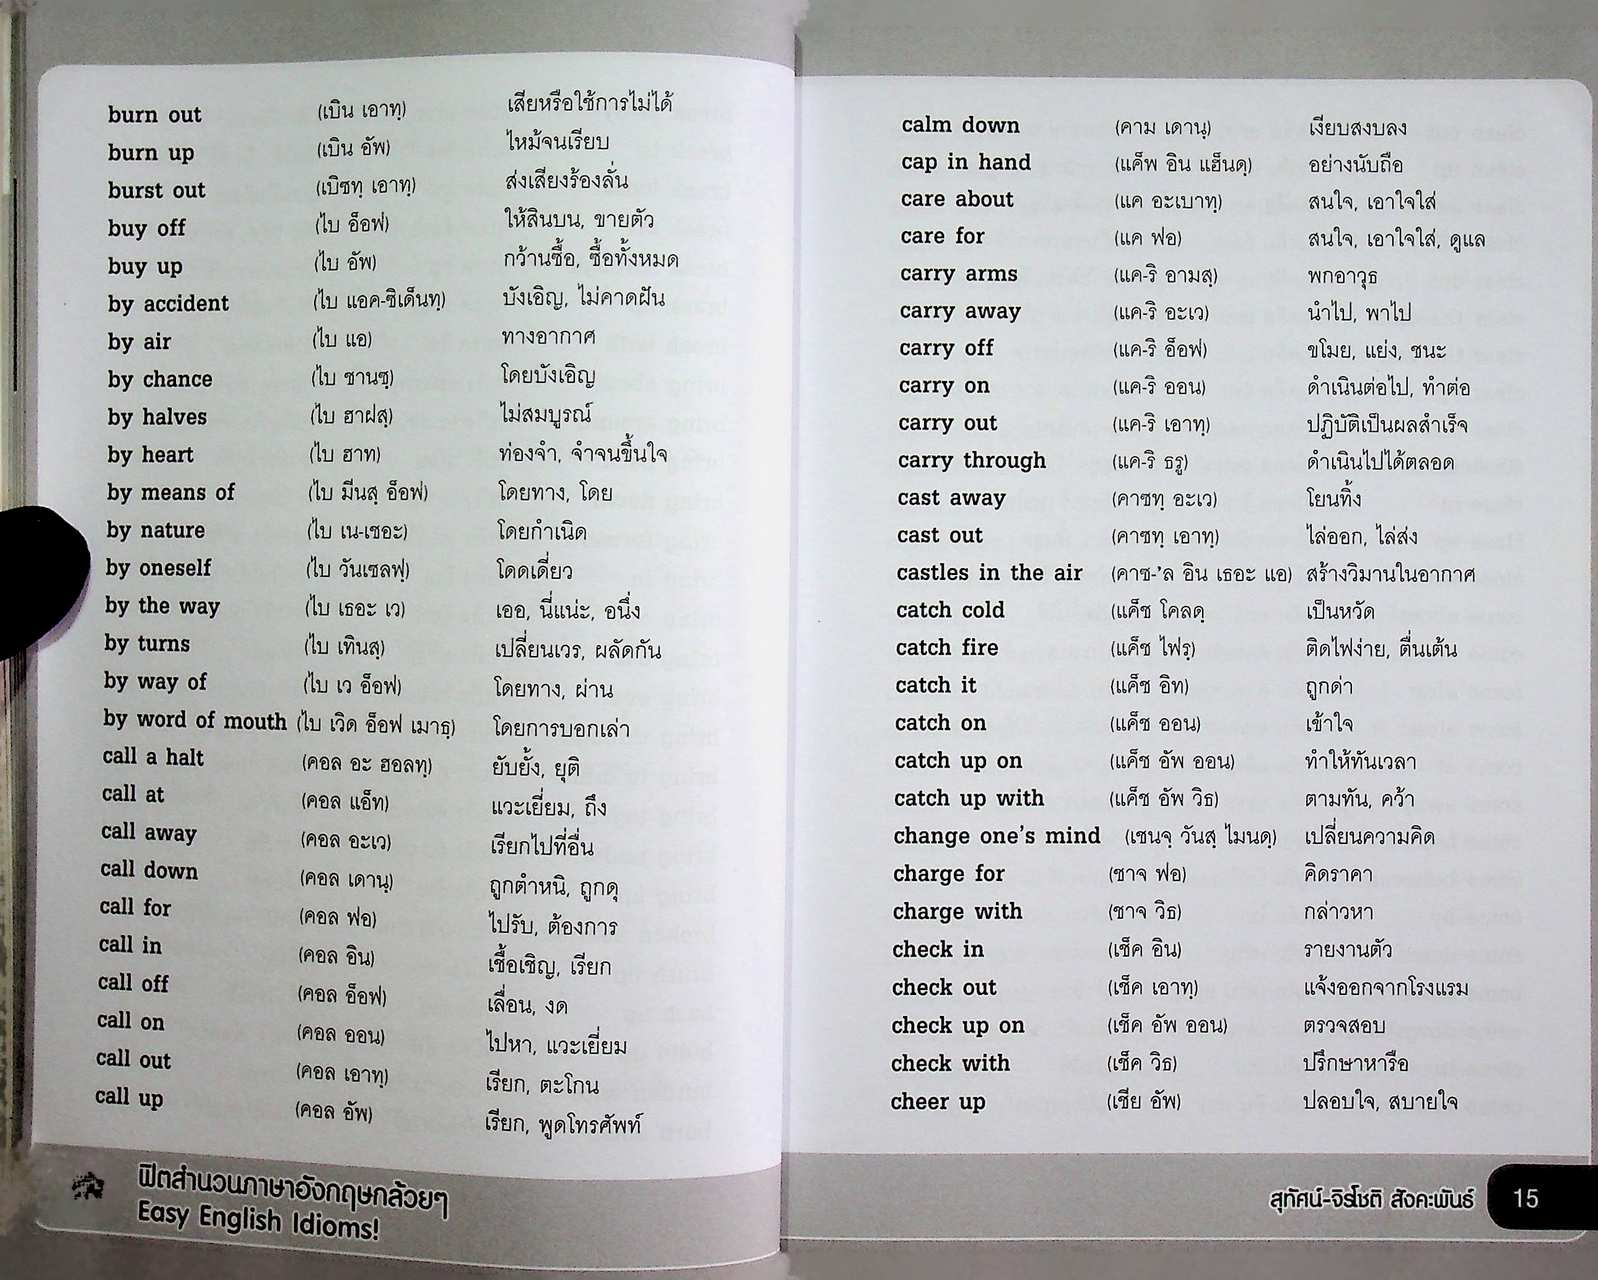 burn out (เบิน เอาทฺ) เสียหรือใช้การไม่ได้
burn up (เบิน อัพ) ไหม้จนเรียบ
burst out (เบิซทฺ เอาทฺ) ส่งเสียงร้องลั่น
buy off (ไบ อ็อฟ) ให้สินบน, ขายตัว
buy up (ไบ อัพ) กว้านซื้อ, ซื้อทั้งหมด
by accident (ไบ แอค-ซิเด็นทฺ) บังเอิญ, ไม่คาดฝัน
by air (ไบ แอ) ทางอากาศ
by chance (ไบ ชานซฺ) โดยบังเอิญ
by halves (ไบ ฮาฝสฺ) ไม่สมบูรณ์
by heart (ไบ ฮาท) ท่องจำ, จำจนขึ้นใจ
by means of (ไบ มีนสฺ อ็อฟ) โดยทาง, โดย
by nature (ไบ เน-เชอะ) โดยกำเนิด
by oneself (ไบ วันเซลฟฺ) โดดเดี่ยว
by the way (ไบ เธอะ เว) เออ, นี่แน่ะ, อนึ่ง
by turns (ไบ เทินสฺ) เปลี่ยนเวร, ผลัดกัน
by way of (ไบ เว อ็อฟ) โดยทาง, ผ่าน
by word of mouth (ไบ เวิด อ็อฟ เมาธฺ) โดยการบอกเล่า
call a halt (คอล อะ ฮอลทฺ) ยับยั้ง, ยุติ
call at (คอล แอ็ท) แวะเยี่ยม, ถึง
call away (คอล อะเว) เรียกไปที่อื่น
call down (คอล เดานฺ) ถูกตำหนิ, ถูกดุ
call for (คอล ฟอ) ไปรับ, ต้องการ
call in (คอล อิน) เชื้อเชิญ, เรียก
call off (คอล อ็อฟ) เลื่อน, งด
call on (คอล ออน) ไปหา, แวะเยี่ยม
call out (คอล เอาทฺ) เรียก, ตะโกน
call up (คอล อัพ) เรียก, พูดโทรศัพท์
ฟิตสำนวนภาษาอังกฤษกล้วยๆ
Easy English Idioms!
calm down (คาม เดานฺ) เงียบสงบลง
cap in hand (แค็พ อิน แฮ็นดฺ) อย่างนับถือ
care about (แค อะเบาทฺ) สนใจ, เอาใจใส่
care for (แค ฟอ) สนใจ, เอาใจใส่, ดูแล
carry arms (แค-ริ อามสฺ) พกอาวุธ
carry away (แค-ริ อะเว) นำไป, พาไป
carry off (แค-ริ อ็อฟ) ขโมย, แย่ง, ชนะ
carry on (แค-ริ ออน) ดำเนินต่อไป, ทำต่อ
carry out (แค-ริ เอาทฺ) ปฏิบัติเป็นผลสำเร็จ
carry through (แค-ริ ธรู) ดำเนินไปได้ตลอด
cast away (คาซทฺ อะเว) โยนทิ้ง
cast out (คาซทฺ เอาทฺ) ไล่ออก, ไล่ส่ง
castles in the air (คาซ-'ล อิน เธอะ แอ) สร้างวิมานในอากาศ
catch cold (แค็ช โคลดฺ) เป็นหวัด
catch fire (แค็ช ไฟรฺ) ติดไฟง่าย, ตื่นเต้น
catch it (แค็ช อิท) ถูกด่า
catch on (แค็ช ออน) เข้าใจ
catch up on (แค็ช อัพ ออน) ทำให้ทันเวลา
catch up with (แค็ช อัพ วิธ) ตามทัน, คว้า
change one's mind (เชนจฺ วันสฺ ไมนดฺ) เปลี่ยนความคิด
charge for (ชาจ ฟอ) คิดราคา
charge with (ชาจ วิธ) กล่าวหา
check in (เช็ค อิน) รายงานตัว
check out (เช็ค เอาทฺ) แจ้งออกจากโรงแรม
check up on (เช็ค อัพ ออน) ตรวจสอบ
check with (เช็ค วิธ) ปรึกษาหารือ
cheer up (เชีย อัพ) ปลอบใจ, สบายใจ
สุทัศน์-จิรโชติ สังคะพันธ์ 15